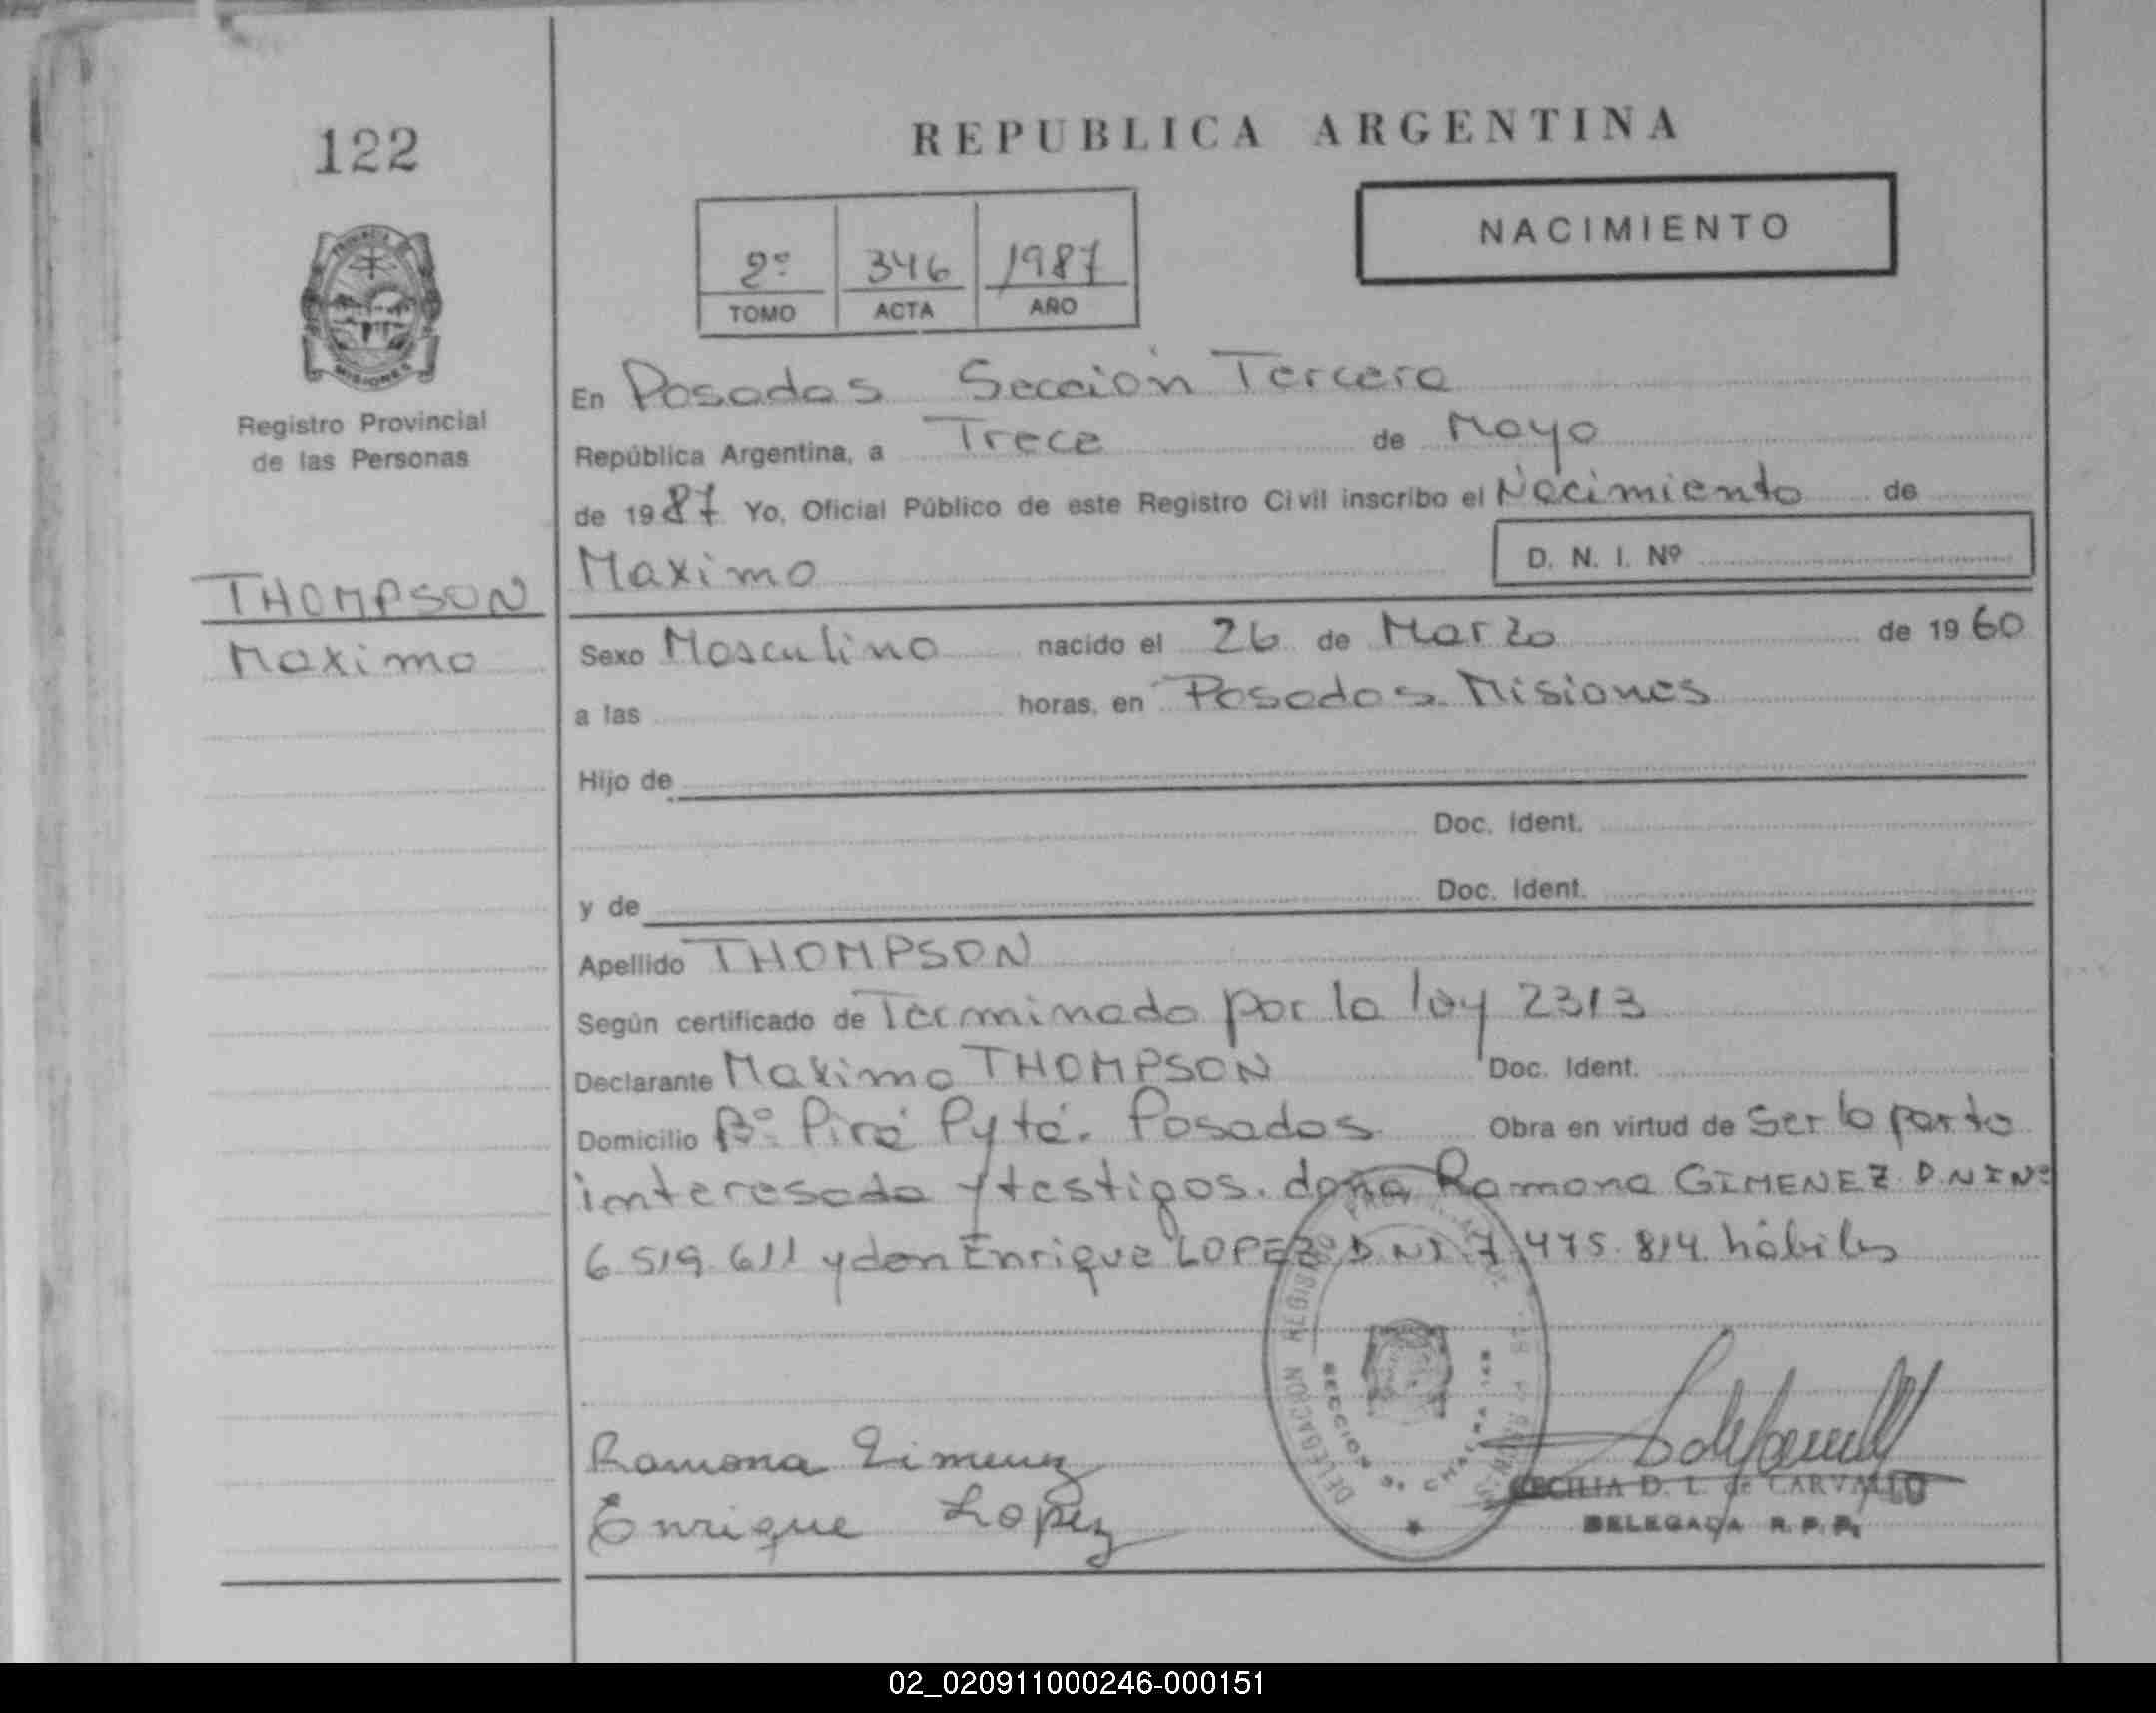 122
REPUBLICA ARGENTINA
NACIMIENTO
2º 346 1987
TOMO ACTA AÑO
PROVINCIA DE
MISIONES
Registro Provincial
de las Personas
En Posadas Sección Tercera
República Argentina, a Trece de Mayo
de 1987 Yo, Oficial Público de este Registro Civil inscribo el Nacimiento de
Maximo D. N. I. Nº
THOMPSON
Maximo
Sexo Masculino nacido el 26 de Marzo de 1960
a las horas, en Posadas. Misiones
Hijo de
Doc. Ident.
y de Doc. Ident.
Apellido THOMPSON
Según certificado de Terminado por la ley 2313
Declarante Maximo THOMPSON Doc. Ident.
Domicilio Bº Pirá Pytá. Posadas Obra en virtud de Ser la parte
interesada y testigos. doña Ramona GIMENEZ D.N.I Nº
6.519.611 y don Enrique LOPEZ D NI 7.475.814. hábiles
DELEGACION REGISTRO
SECCION
Ramona Gimenez
Enrique Lopez
CECILIA D. L. de CARVALLO
DELEGADA R. P. P.
02_020911000246-000151